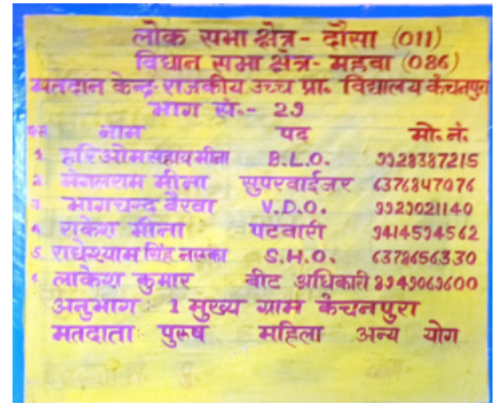 लोक सभा क्षेत्र- दौसा (011)
विधान सभा क्षेत्र- महवा (086)
मतदान केन्द्र-राजकीय उच्च प्रा. विद्यालय कंचनपुरा
भाग सं.- 29
नाम पद मो.नं.
1 हरिओम सहाय मीना B.L.O. 9928387215
2 मंगलराम मीना सुपरवाईजर 6376847076
3 भागचन्द बैरवा V.D.O. 9929021140
4 राकेश मीना पटवारी 9414594562
5. राधेश्याम सिंह नरूका S.H.O. 6378656330
6 लाकेश कुमार बीट अधिकारी 8949069600
अनुभाग : 1 मुख्य ग्राम कंचनपुरा
मतदाता पुरूष महिला अन्य योग